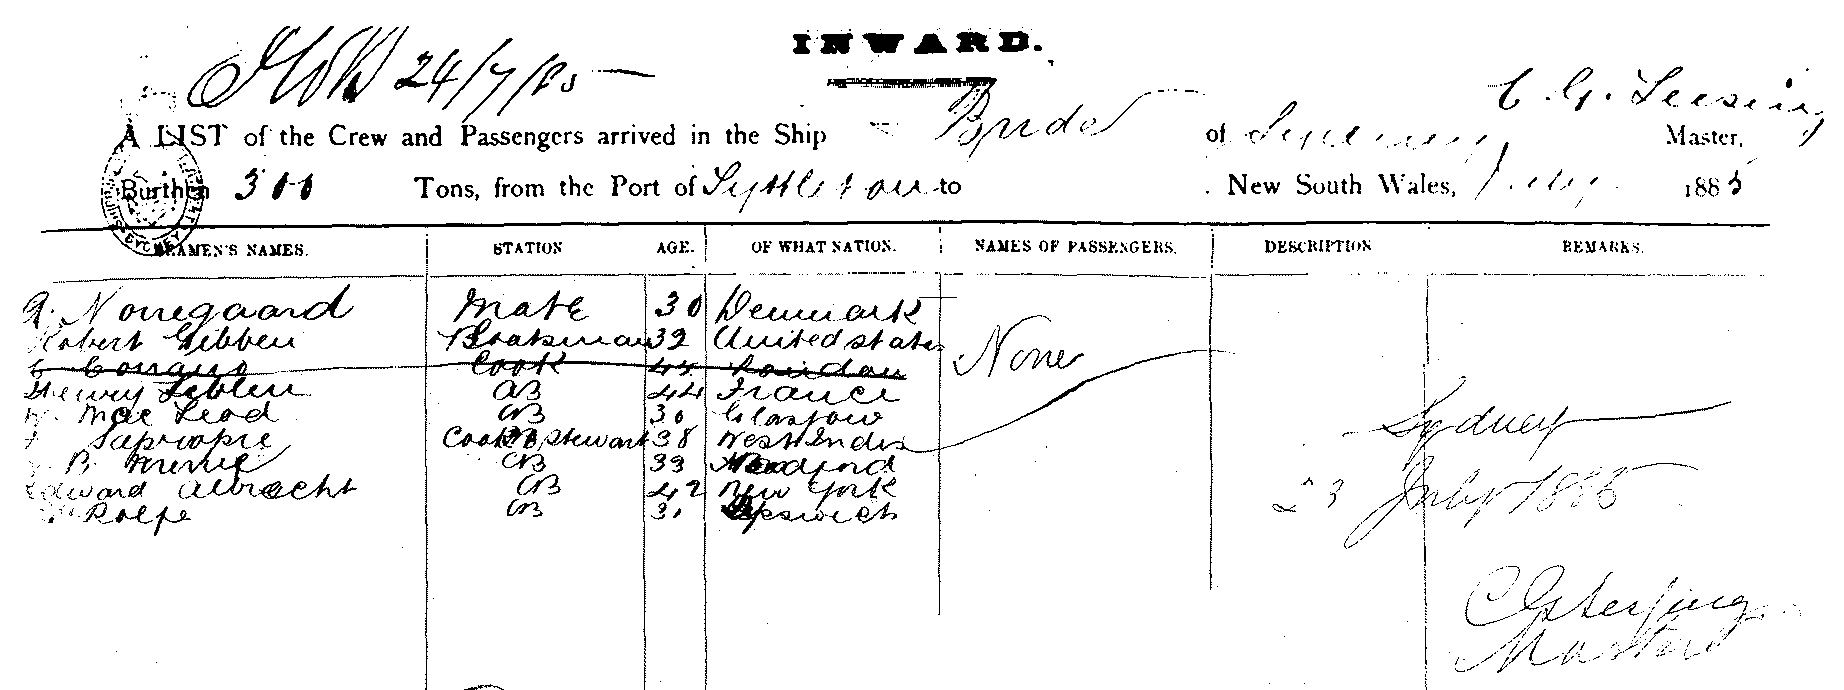 INWARD.
24/7/85
A LIST of the Crew and Passengers arrived in the Ship Bride of Sydney C. G. Master,
Burthen 300 Tons, from the Port of Lyttleton to New South Wales, July 1885
SEAMEN'S NAMES. STATION AGE. OF WHAT NATION. NAMES OF PASSENGERS. DESCRIPTION REMARKS.
A. Norregaard Mate 30 Denmark
Robert Gibben Boatsman 32 United states None
Cook London
Henry Leblen AB 44 France
Mac Leod AB 30 Glasgow Sydney
Cook & Stewart 38 West Indis
B AB 33 Bradford
Edward Albrecht AB 42 New York 23 July 1885
Rolfe AB 31 Ipswich
Master